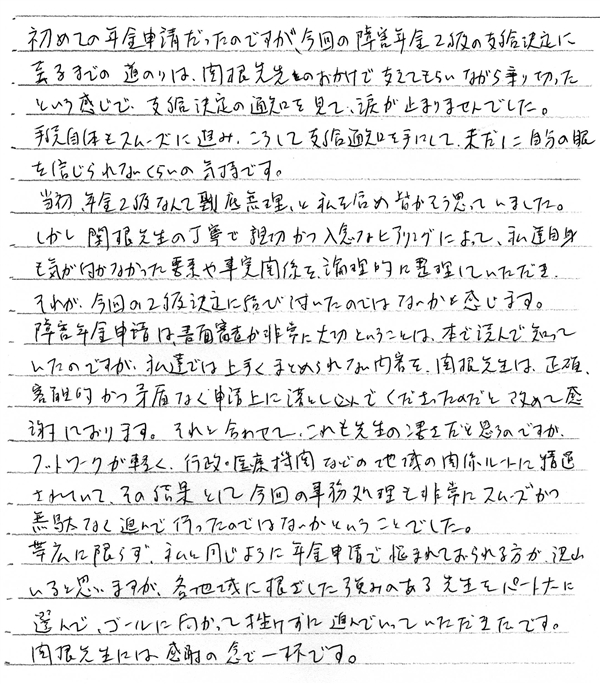 初めての年金申請だったのですが、今回の障害年金2級の支給決定に
至るまでの道のりは、関根先生のおかげで支えてもらいながら乗り切った
という感じで、支給決定の通知を見て、涙が止まりませんでした。
手続自体もスムーズに進み、こうして支給通知を手にして、未だに自分の眼
を信じられないくらいの気持です。
当初、年金2級なんて到底無理、と私を含め皆がそう思っていました。
しかし関根先生の丁寧で親切かつ入念なヒアリングによって、私達自身
も気が付かなかった要素や事実関係を、論理的に整理していただき、
それが、今回の2級決定に結び付いたのではないかと感じます。
障害年金申請は、書面審査が非常に大切ということは、本で読んで知って
いたのですが、私達では上手くまとめられない内容を、関根先生は、正確、
客観的かつ矛盾なく申請上に落とし込んでくださったのだと改めて感
謝しております。それと合わせて、これも先生の凄さだと思うのですが、
フットワークが軽く、行政・医療機関などの地域の関係ルートに精通
されていて、その結果として今回の事務処理も非常にスムーズかつ
無駄なく進んで行ったのではないかということでした。
帯広に限らず、私と同じように年金申請で悩まれておられる方が、沢山
いると思いますが、各地域に根ざした強みのある先生をパートナーに
選んで、ゴールに向かって挫けずに進んでいっていただきたです。
関根先生には感謝の念で一杯です。